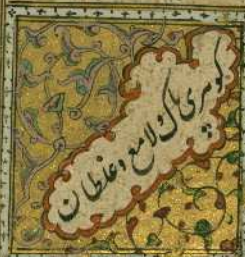 گوهری پاک لامع و غلطان